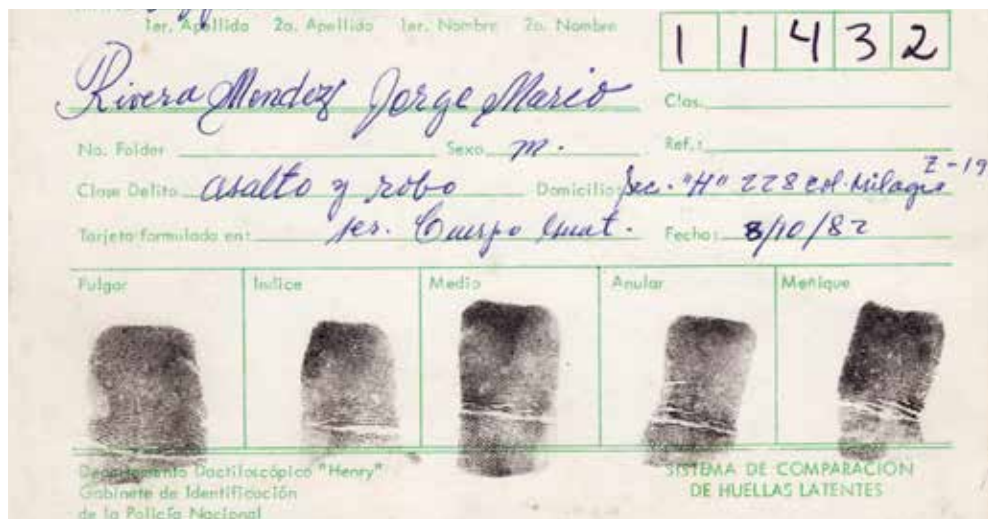 1er. Apellido 2o. Apellido 1er. Nombre 2o. Nombre
1 1 4 3 2
Rivera Mendez Jorge Mario
Clas.
No. Folder Sexo m. Ref.:
Clase Delito asalto y robo Domicilio Sec. "H" 228 col. Milagro Z-19
Tarjeta formulada en: 1er. Cuerpo Guat. Fecha: 8/10/82
Pulgar Indice Medio Anular Meñique
Departamento Dactiloscópico "Henry"
Gabinete de Identificación
de la Policía Nacional
SISTEMA DE COMPARACION
DE HUELLAS LATENTES